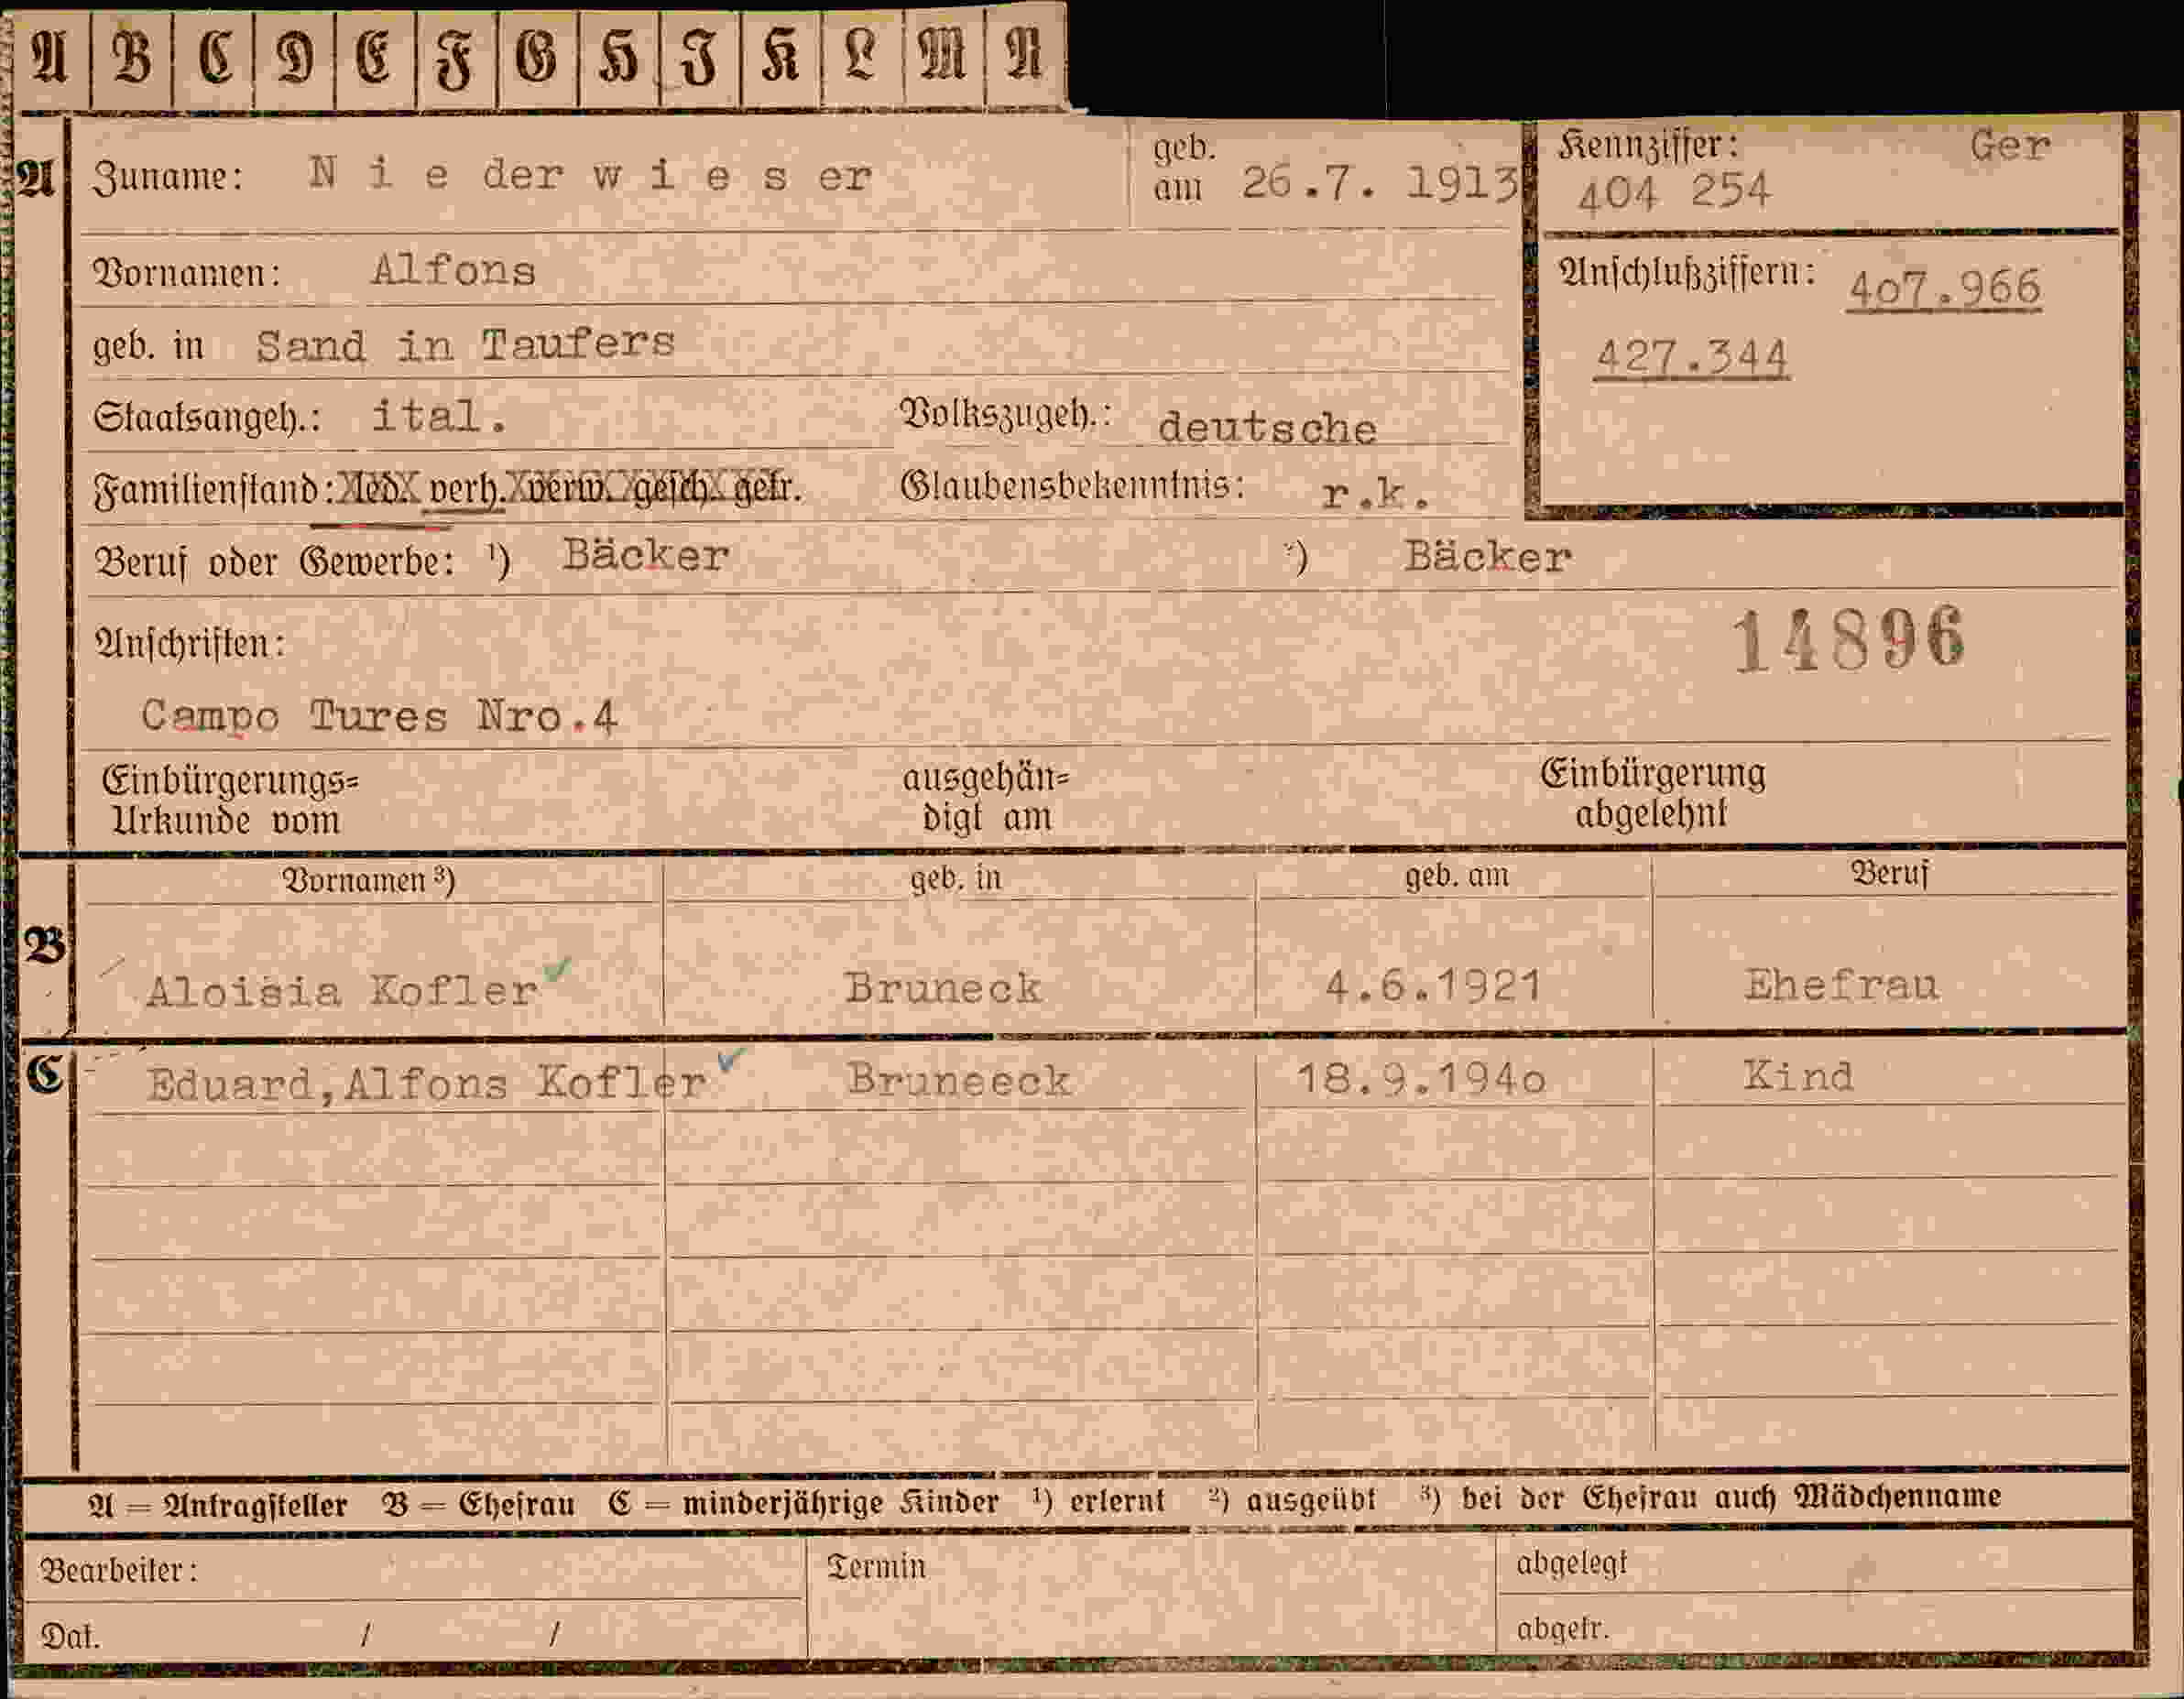 A B C D E F G H I K L M N
A Zuname: N i e der w i e s er geb. am 26.7. 1913
Kennziffer: Ger
404 254
Vornamen: Alfons
Anschlußziffern: 4o7.966
427.344
geb. in Sand in Taufers
Staatsangeh.: ital. Volkszugeh.: deutsche
Familienstand: led. verh. verw. gesch. getr. Glaubensbekenntnis: r.k.
Beruf oder Gewerbe: ¹) Bäcker ²) Bäcker
Anschriften: 14896
Campo Tures Nro.4
Einbürgerungs= ausgehän= Einbürgerung
Urkunde vom digt am abgelehnt
Vornamen ³) geb. in geb. am Beruf
B
Aloisia Kofler Bruneck 4.6.1921 Ehefrau
C Eduard,Alfons Kofler Bruneeck 18.9.194o Kind
A = Antragsteller B = Ehefrau C = minderjährige Kinder ¹) erlernt ²) ausgeübt ³) bei der Ehefrau auch Mädchenname
Bearbeiter: Termin abgelegt
Dat. / / abgetr.